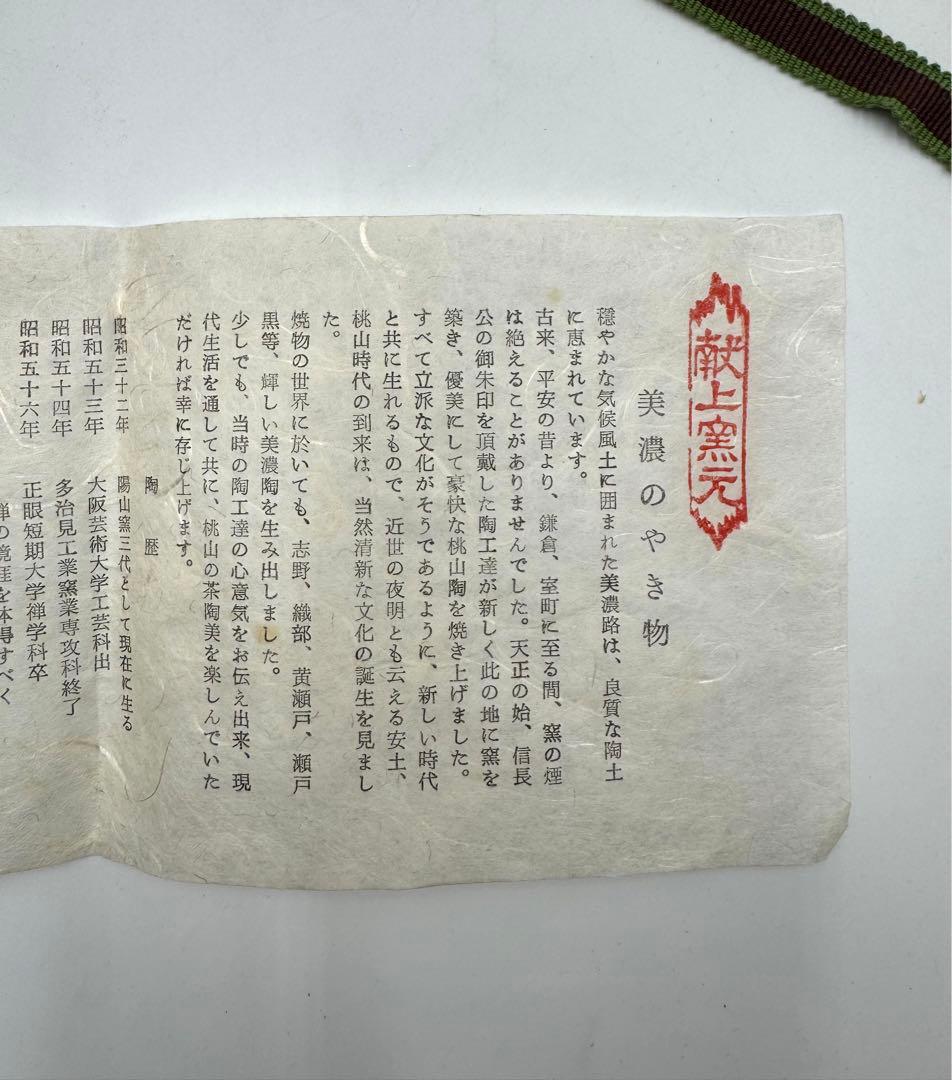 献上窯元
美濃のやき物
穏やかな気候風土に囲まれた美濃路は、良質な陶土
に恵まれています。
古来、平安の昔より、鎌倉、室町に至る間、窯の煙
は絶えることがありませんでした。天正の始、信長
公の御朱印を頂戴した陶工達が新しく此の地に窯を
築き、優美にして豪快な桃山陶を焼き上げました。
すべて立派な文化がそうであるように、新しい時代
と共に生れるもので、近世の夜明とも云える安土、
桃山時代の到来は、当然清新な文化の誕生を見まし
た。
焼物の世界に於いても、志野、織部、黄瀬戸、瀬戸
黒等、輝しい美濃陶を生み出しました。
少しでも、当時の陶工達の心意気をお伝え出来、現
代生活を通して共に、桃山の茶陶美を楽しんでいた
だければ幸に存じ上げます。
陶歴
昭和三十二年 陽山窯三代として現在に生る
昭和五十三年 大阪芸術大学工芸科出
昭和五十四年 多治見工業窯業専攻科終了
昭和五十六年 正眼短期大学禅学科卒
禅の境涯を体得すべく